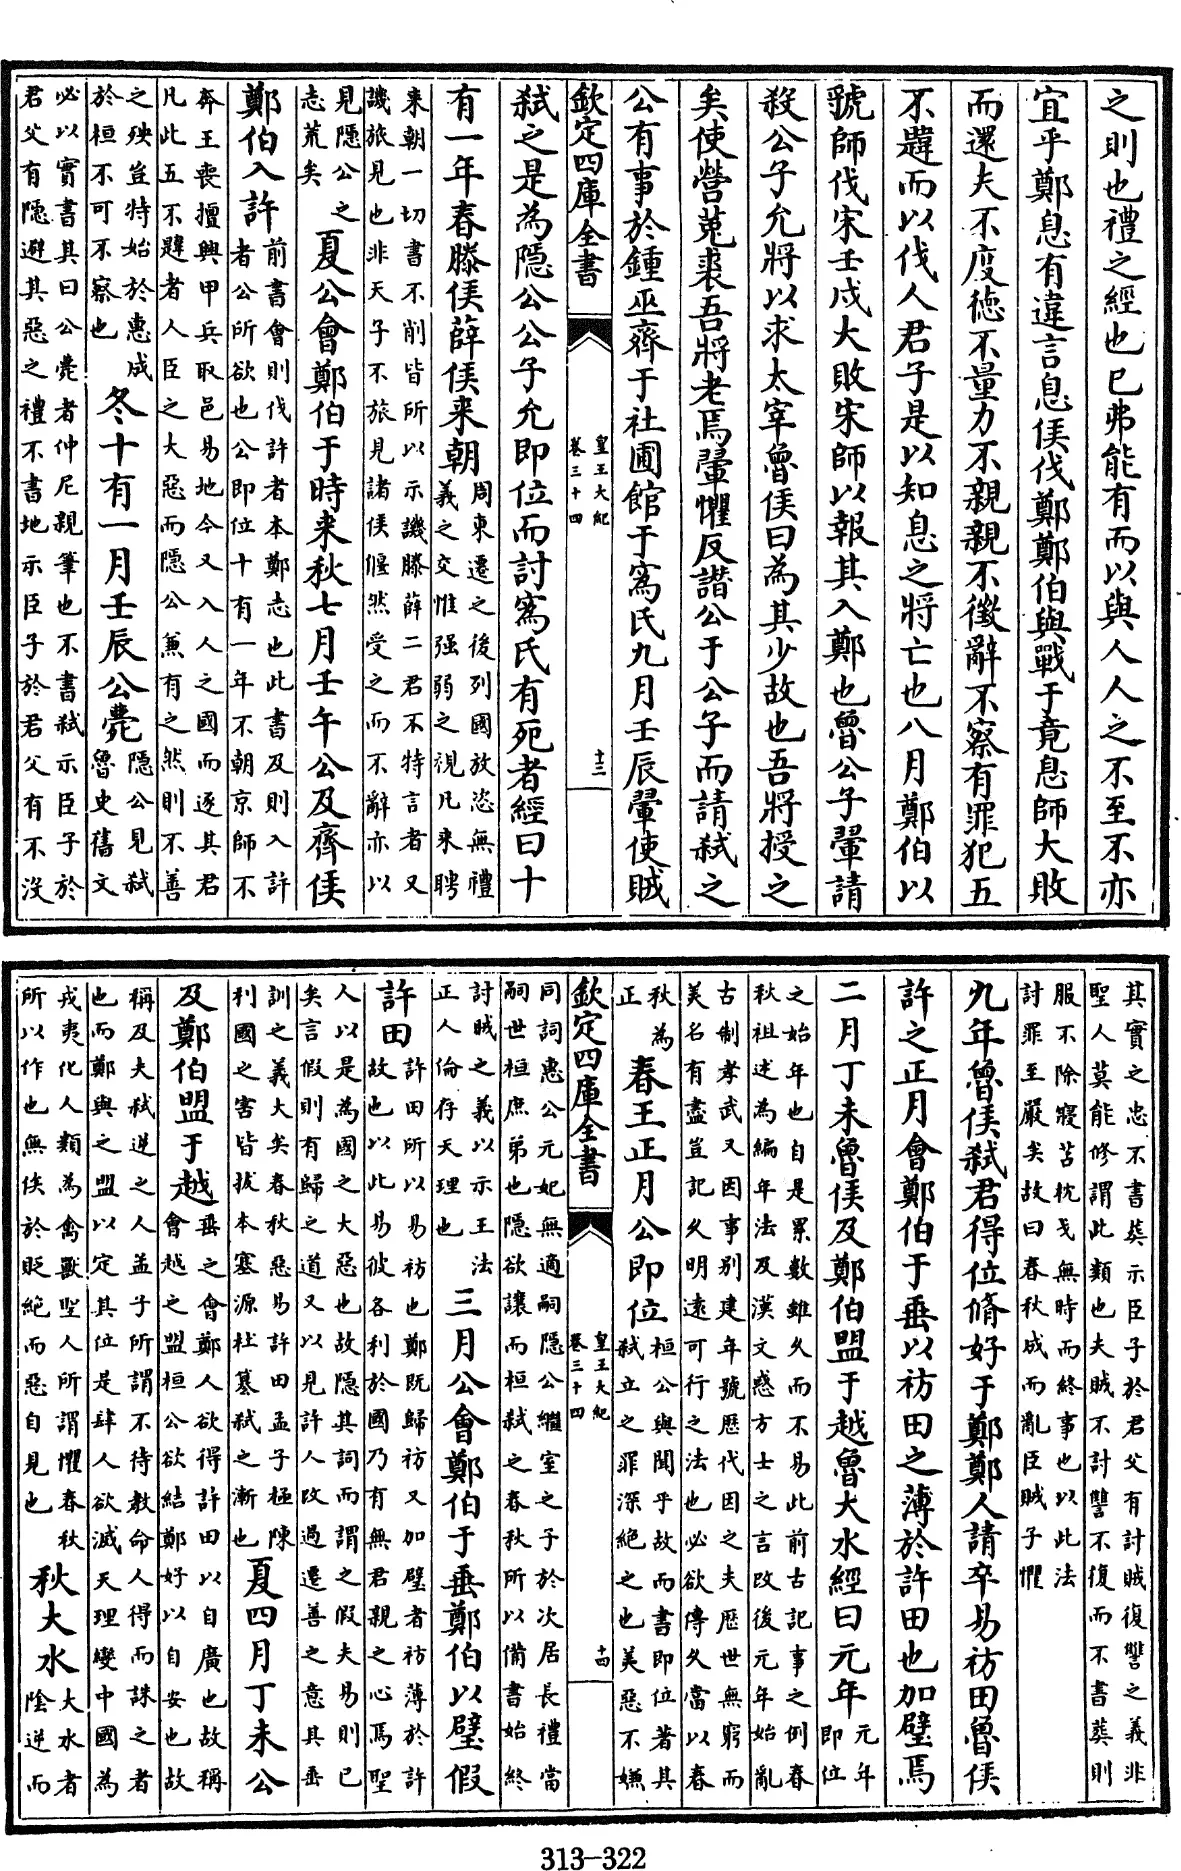 之則也禮之經也已弗能有而以與人人之不至不亦
宜乎鄭息有違言息侯伐鄭鄭伯與戰于竟息師大敗
而還夫不度徳不量力不親親不徵辭不察有罪犯五
不韙而以伐人君子是以知息之將亡也八月鄭伯以
虢師伐宋壬戌大敗宋師以報其入鄭也魯公子翬請
殺公子允將以求太宰魯侯曰為其少故也吾將授之
矣使營菟裘吾將老焉翬懼反譖公于公子而請弑之
公有事於鍾巫齊于社圃館于寪氏九月壬辰翬使賊
欽定四庫全書
皇王大紀
卷三十四
十三
弑之是為隠公公子允即位而討寪氏有死者經曰十
有一年春滕侯薛侯来朝
周東遷之後列國放恣無禮
義之交惟强弱之視凡来聘
来朝一切書不削皆所以示譏滕薛二君不特言者又
譏旅見也非天子不旅見諸侯偃然受之而不辭亦以
見隠公之
志荒矣
夏公會鄭伯于時来秋七月壬午公及齊侯
鄭伯入許
前書會則伐許者本鄭志也此書及則入許
者公所欲也公即位十有一年不朝京師不
奔王喪擅興甲兵取邑易地今又入人之國而逐其君
凡此五不韙者人臣之大惡而隠公兼有之然則不善
之殃豈特始於惠成
於桓不可不察也
冬十有一月壬辰公薨
隠公見弑
魯史舊文
必以實書其曰公薨者仲尼親筆也不書弑示臣子於
君父有隠避其惡之禮不書地示臣子於君父有不没
其實之忠不書葬示臣子於君父有討賊復讐之義非
聖人莫能修謂此類也夫賊不討讐不復而不書葬則
服不除寢苫枕戈無時而終事也以此法
討罪至嚴矣故曰春秋成而亂臣賊子懼
九年魯侯弑君得位脩好于鄭鄭人請卒易祊田魯侯
許之正月會鄭伯于垂以祊田之薄於許田也加璧焉
二月丁未魯侯及鄭伯盟于越魯大水經曰元年
元年
即位
之始年也自是累數雖久而不易此前古記事之例春
秋祖述為編年法及漢文惑方士之言改後元年始亂
古制孝武又因事别建年號歴代因之夫歴世無窮而
美名有盡豈記久明逺可行之法也必欲傳久當以春
秋為
正
春王正月公即位
桓公與聞乎故而書即位著其
弑立之罪深絶之也美惡不嫌
欽定四庫全書
皇王大紀
卷三十四
十四
同詞惠公元妃無適嗣隠公繼室之子於次居長禮當
嗣世桓庶弟也隠欲讓而桓弑之春秋所以備書始終
討賊之義以示王法
正人倫存天理也
三月公會鄭伯于垂鄭伯以璧假
許田
許田所以易祊也鄭既歸祊又加璧者祊薄於許
故也以此易彼各利於國乃有無君親之心焉聖
人以是為國之大惡也故隠其詞而謂之假夫易則已
矣言假則有歸之道又以見許人改過遷善之意其垂
訓之義大矣春秋惡易許田孟子極陳
利國之害皆拔本塞源杜簒弑之漸也
夏四月丁未公
及鄭伯盟于越
垂之會鄭人欲得許田以自廣也故稱
會越之盟桓公欲結鄭好以自安也故
稱及夫弑逆之人盖子所謂不待教命人得而誅之者
也而鄭與之盟以定其位是肆人欲滅天理變中國為
戎夷化人類為禽獸聖人所謂懼春秋
所以作也無俟於貶絶而惡自見也
秋大水
大水者
陰逆而
313-322